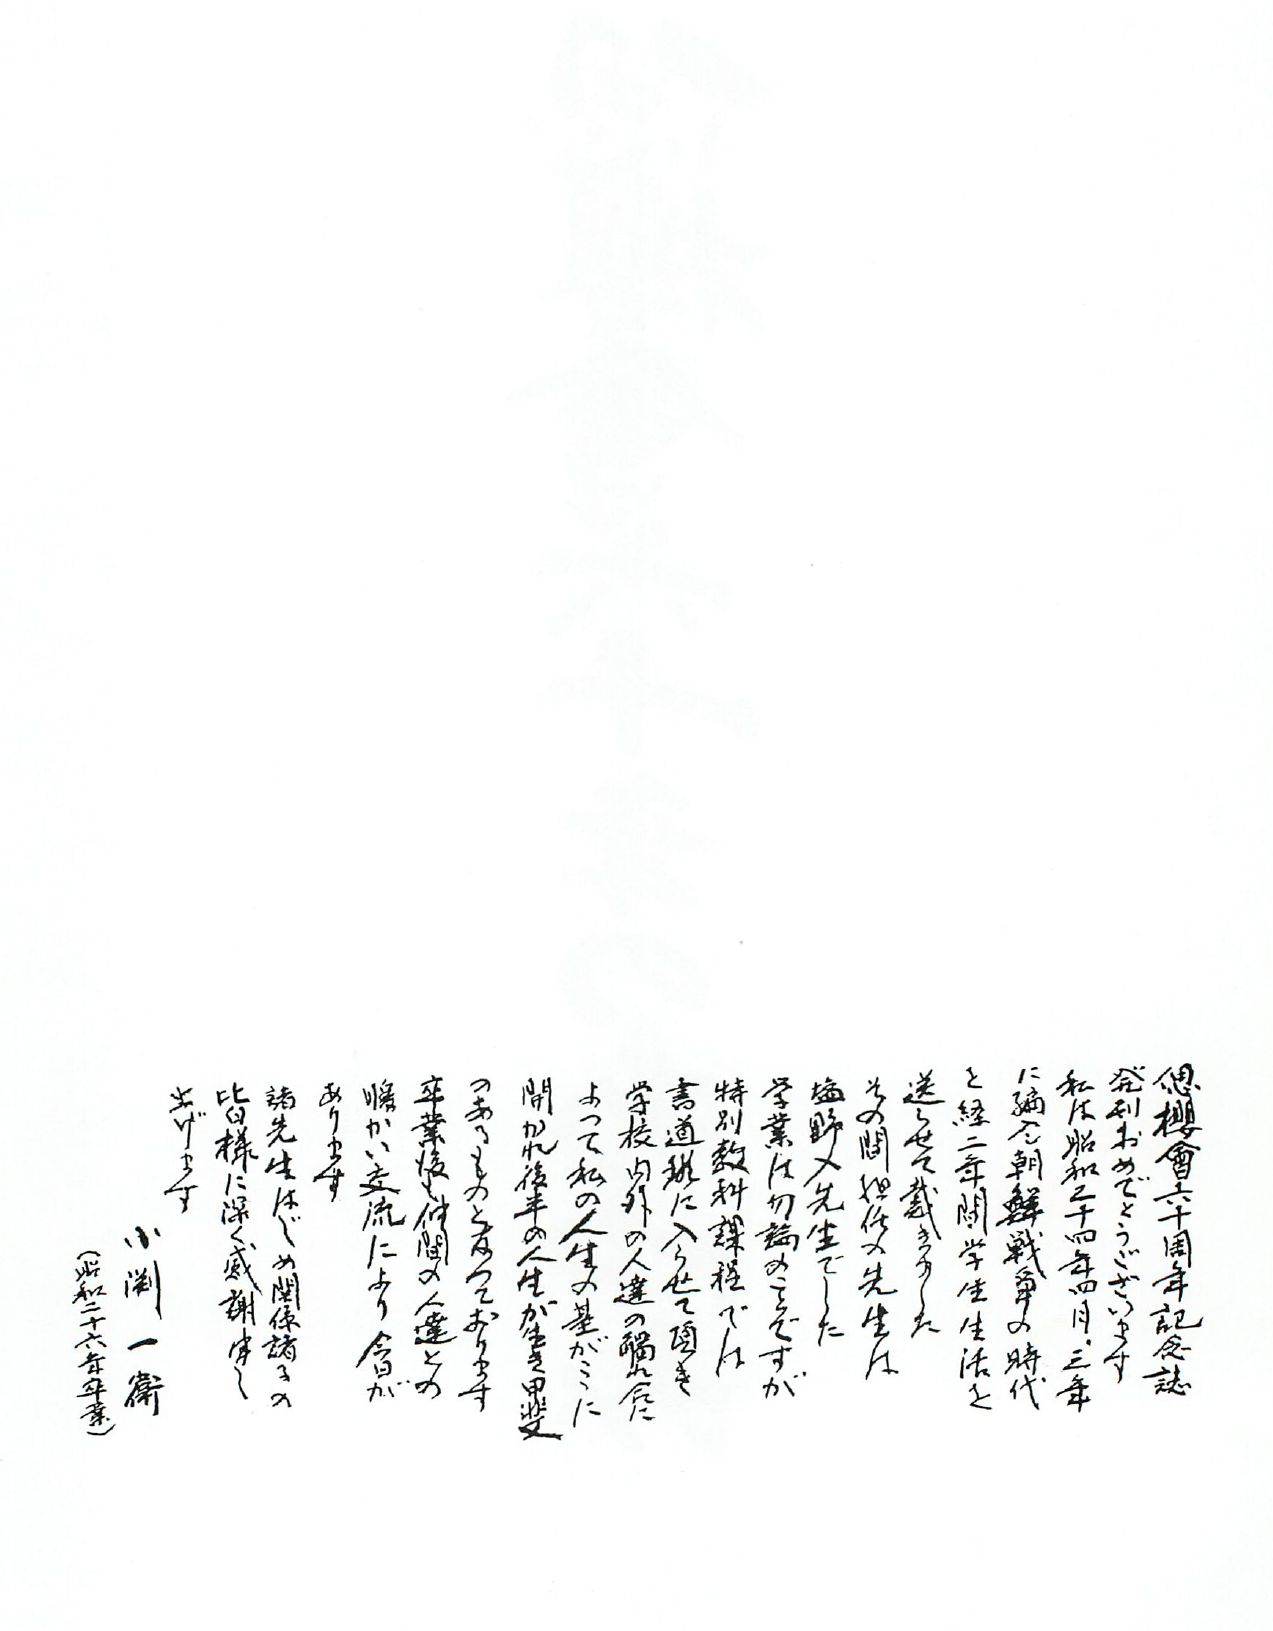 思櫻會六十周年記念誌
発刊おめでとうございます
私は昭和二十四年四月。三年
に編入、朝鮮戦争の時代
を経二年間学生生活を
送らせて戴きました
その間担任の先生は
塩野入先生でした
学業は勿論のことですが
特別教科課程では
書道班に入らせて頂き
学校内外の人達の触れ合に
よって私の人生の基がこゝに
開かれ後半の人生が生き甲斐
のあるものとなっております
卒業後も仲間の人達との
暖かい交流により今日が
あります
諸先生はじめ関係諸子の
皆様に深く感謝申し
上げます
小渕一衛
(昭和二十六年卒業)